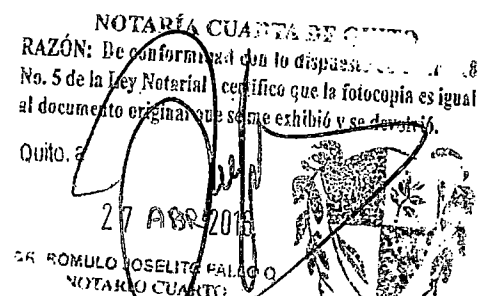 NOTARÍA CUARTA DE QUITO
RAZÓN: De conformidad con lo dispuesto
No. 5 de la Ley Notarial certifico que la fotocopia es igual
al documento original que se me exhibió y se devolvió.
Quito, a
27 ABR 201
DR. ROMULO JOSELITO PALLO Q
NOTARIO CUARTO